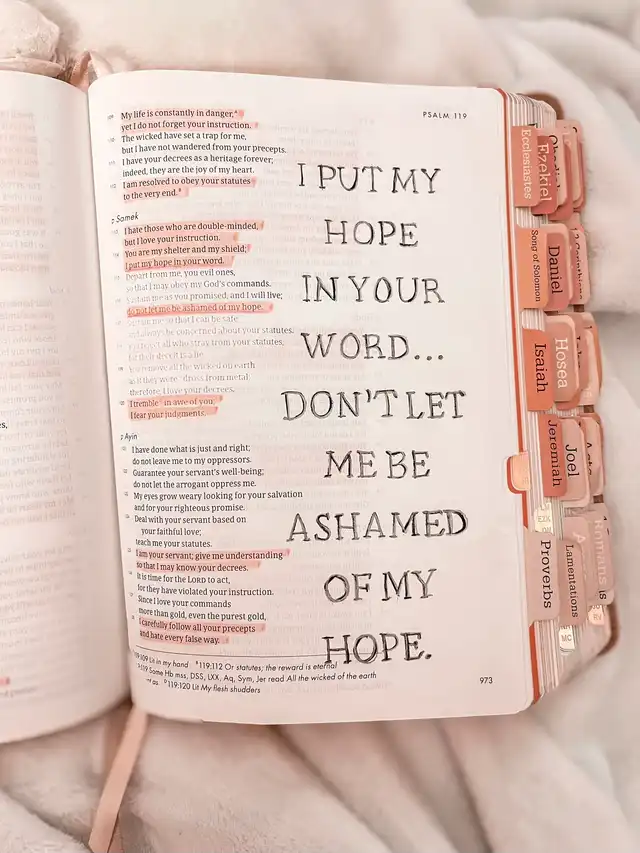 PSALM 119
My life is constantly in danger,
yet I do not forget your instruction.
The wicked have set a trap for me,
but I have not wandered from your precepts.
I have your decrees as a heritage forever;
indeed, they are the joy of my heart.
I am resolved to obey your statutes
to the very end.
Samek
I hate those who are double-minded,
but I love your instruction.
You are my shelter and my shield;
I put my hope in your word.
Depart from me, you evil ones,
so that I may obey my God's commands.
as you promised, and I will live;
do not let me be ashamed of my hope.
so that I can be safe
and always be concerned about your statutes.
all who stray from your statutes,
for their deceit is a lie
remove all the wicked on earth
as if they were dross from metal
therefore, I love your decrees.
I tremble in awe of you;
I fear your judgments.
Ayin
I have done what is just and right;
do not leave me to my oppressors.
Guarantee your servant's well-being;
do not let the arrogant oppress me.
My eyes grow weary looking for your salvation
and for your righteous promise.
Deal with your servant based on
your faithful love;
teach me your statutes.
I am your servant; give me understanding
so that I may know your decrees.
It is time for the LORD to act,
for they have violated your instruction.
Since I love your commands
more than gold, even the purest gold,
I carefully follow all your precepts
and hate every false way.
I PUT MY
HOPE
IN YOUR
WORD...
DON'T LET
ME BE
ASHAMED
OF MY
HOPE.
119:109 Lit in my hand 119:112 Or statutes; the reward is eternal
119 Some Hb mss, DSS, LXX, Aq, Sym, Jer read All the wicked of the earth
as 119:120 Lit My flesh shudders
973
Ecclesiastes
Ezekiel
Song of Solomon
Daniel
Isaiah
Hosea
Jeremiah
Joel
Proverbs
Lamentations
Romans
EZK
MC
RV